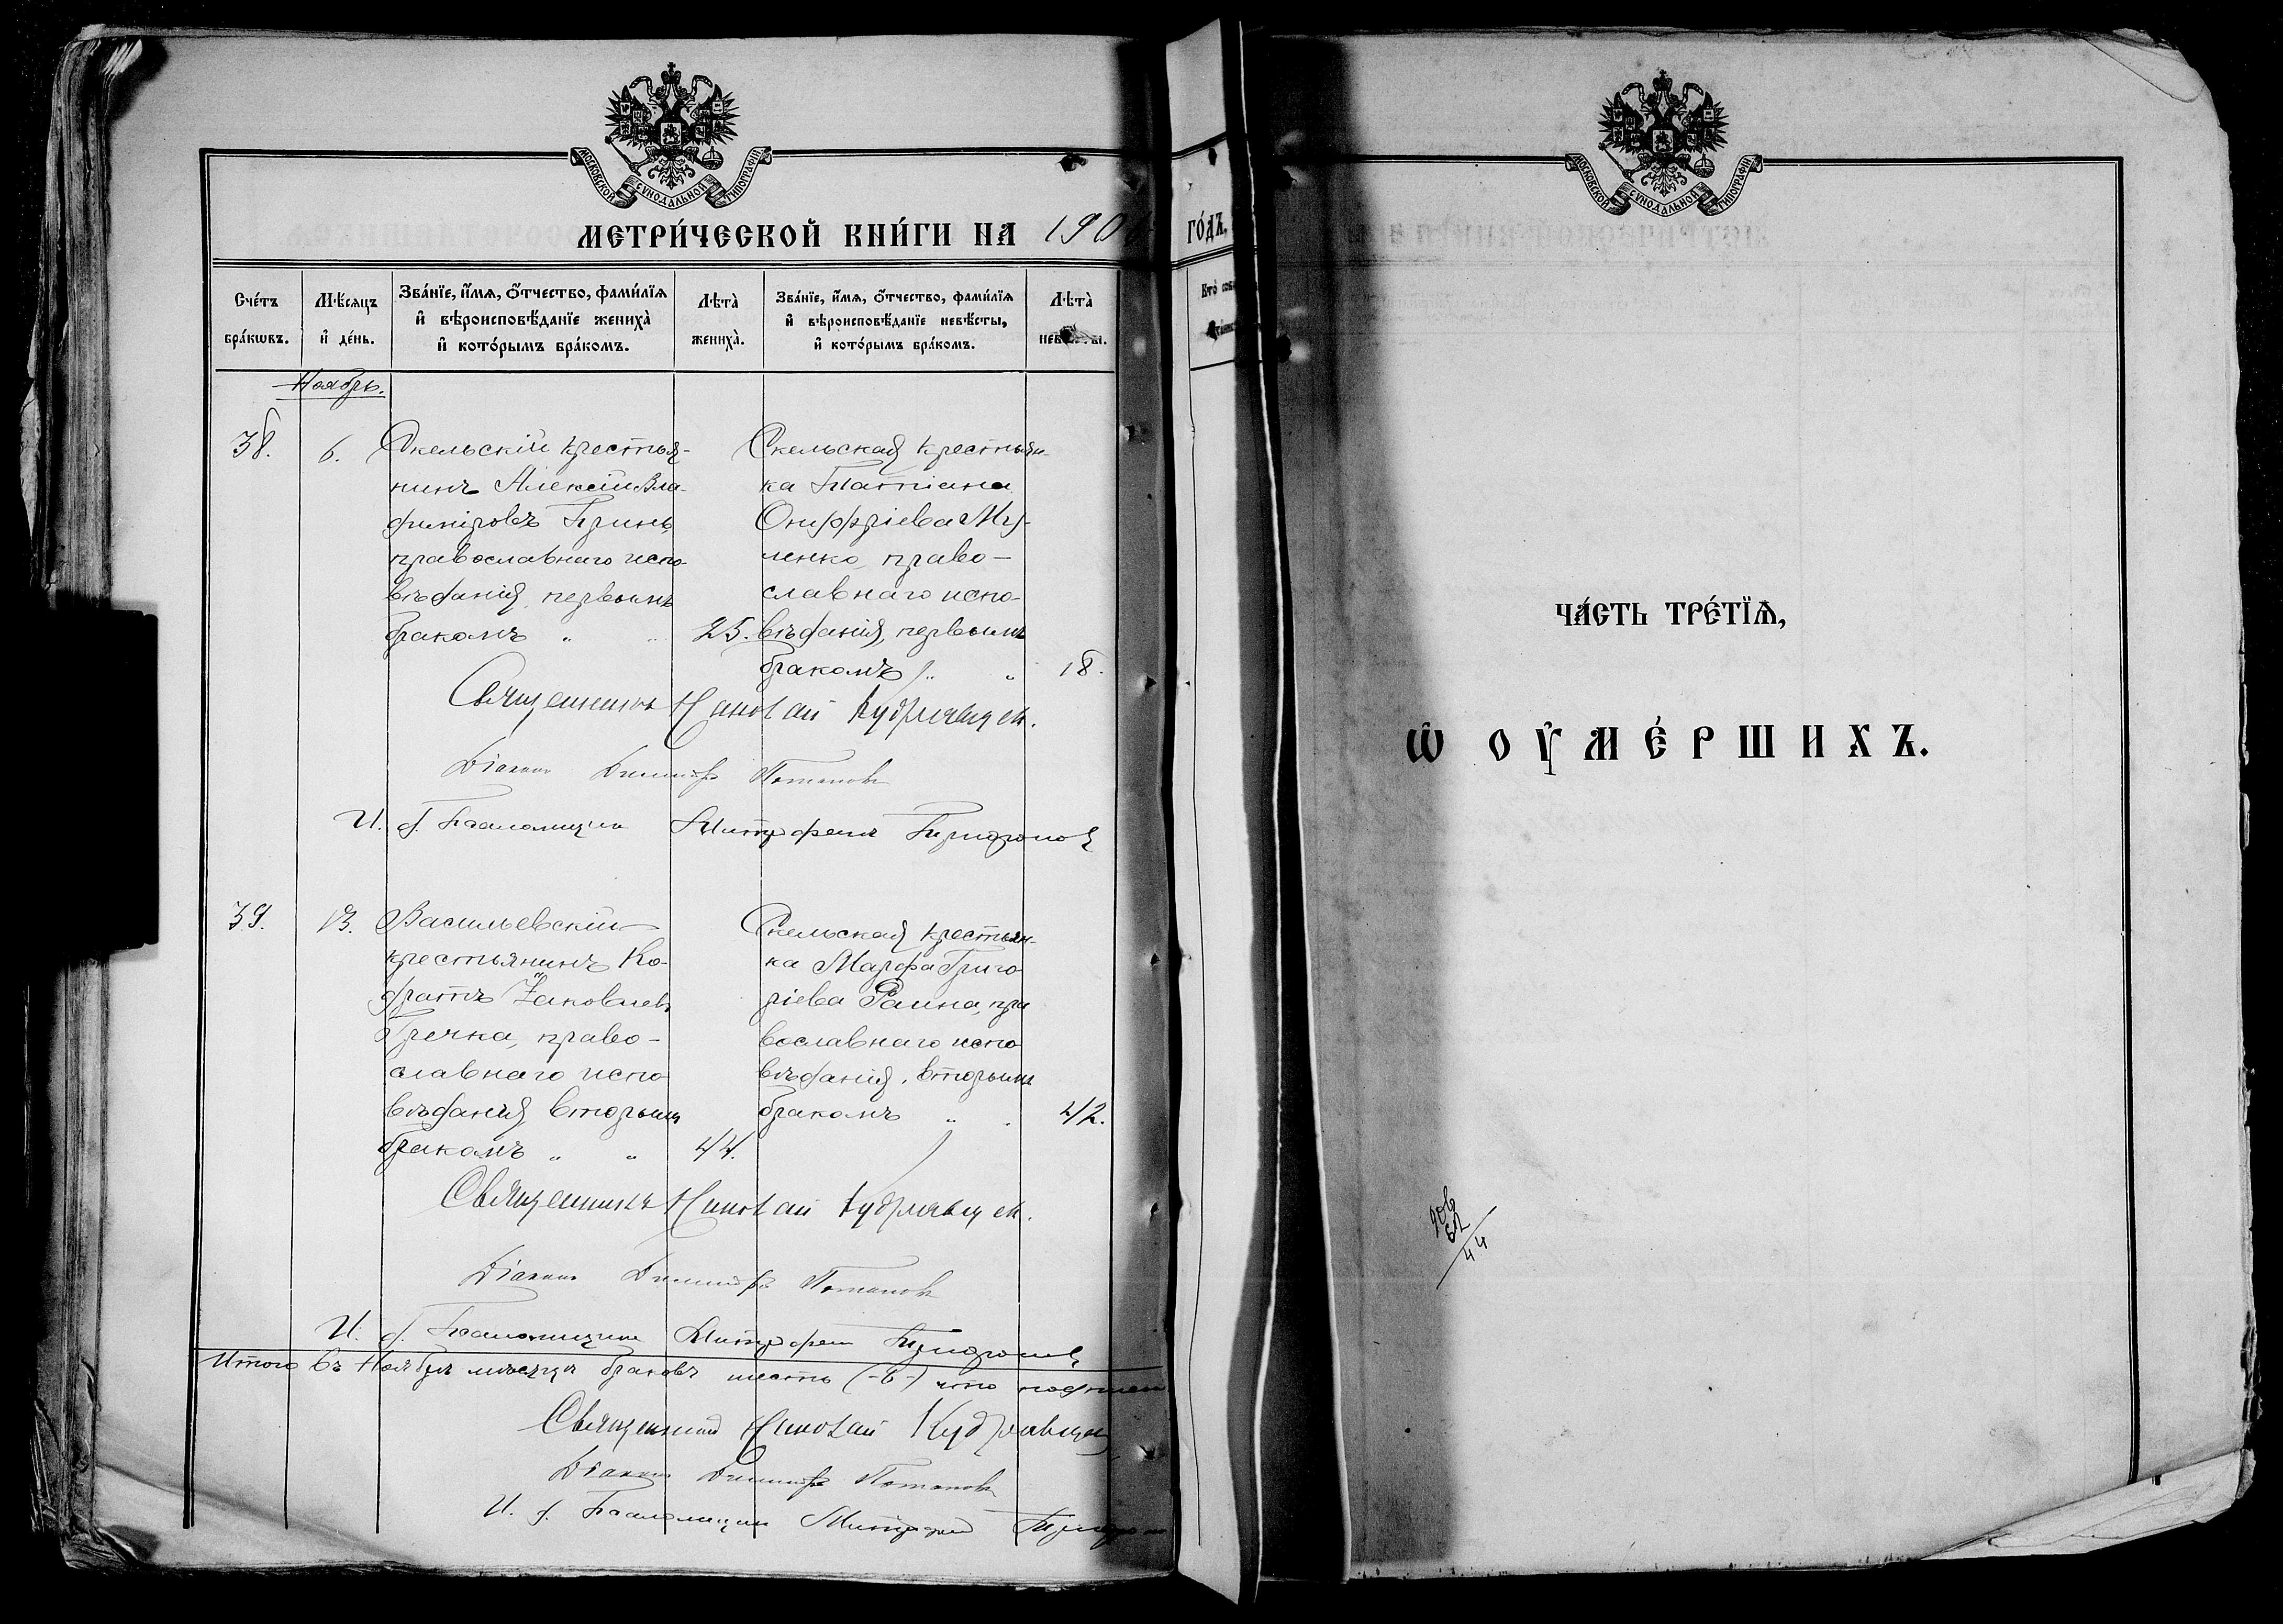 МОСКОВСКОЙ СѴНОДАЛЬНОЙ ТИПОГРАФІИ
МЕТРИ́ЧЕСКОЙ КНИ́ГИ НА 190
ГО́ДЪ,
Сче́тъ бра́кѡвъ.
Мѣ́сяцъ и҆ де́нь.
Зва́нїе, и҆́мѧ, ѻ҆́тчество, фами́лїѧ
и҆ вѣроисповѣ́данїе женихà
и҆ кото́рымъ бра́комъ.
Лѣтà женихà.
Зва́нїе, и҆́мѧ, ѻ҆́тчество, фами́лїѧ
и҆ вѣроисповѣ́данїе невѣ́сты,
и҆ кото́рымъ бра́комъ.
Лѣтà
Ноябрь.
38.
6.
Скельскій крестья-
нинъ Алексій Вла-
диміровъ Гринь,
православнаго испо-
вѣданія, первымъ
бракомъ " "
25.
Скельская крестьян-
ка Татіана
Онуфріева Му-
ленко, право-
славнаго испо-
вѣданія, первымъ
бракомъ " "
18.
Священникъ Николай Кудрявцев.
Діаконъ Димитрій Потаповъ
И. д. Псаломщика Митрофанъ
39.
13.
Васильевскій
крестьянинъ Ко-
дратъ Іаковлевъ
Гречка, право-
славнаго испо
вѣданія, вторымъ
бракомъ " "
44.
Скельская крестьян-
ка Марфа Григо
ріева Раина, пра
вославнаго испо
вѣданія, вторымъ
бракомъ " .
42.
Священникъ Николай Кудрявцев.
Діаконъ Димитрій Потаповъ
И. д. Псаломщика Митрофанъ
Итого въ Ноябрѣ мѣсяцѣ браковъ шесть (-6-) что
Священникъ Николай Кудрявцев
Діаконъ Димитрій Потаповъ
И. д. Псаломщика Митрофанъ
МОСКОВСКОЙ СѴНОДАЛЬНОЙ ТИПОГРАФІИ
ЧА́СТЬ ТРЕ́ТЇѦ,
Ѡ҆ ОУ҆МЕ́РШИХЪ.
44